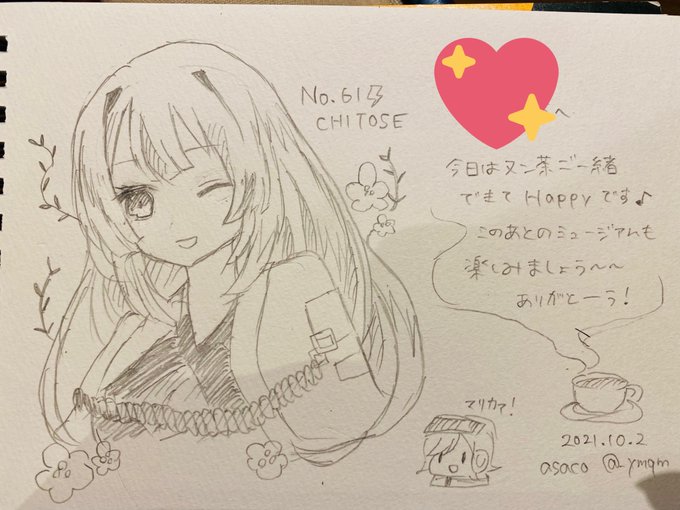 No.61
CHITOSE
へ
今日はヌン茶ご一緒
できて Happyです♪
このあとのミュージアムも
楽しみましょう〜〜
ありがとーう!
マリカで!
2021.10.2
asaco @_ymqm